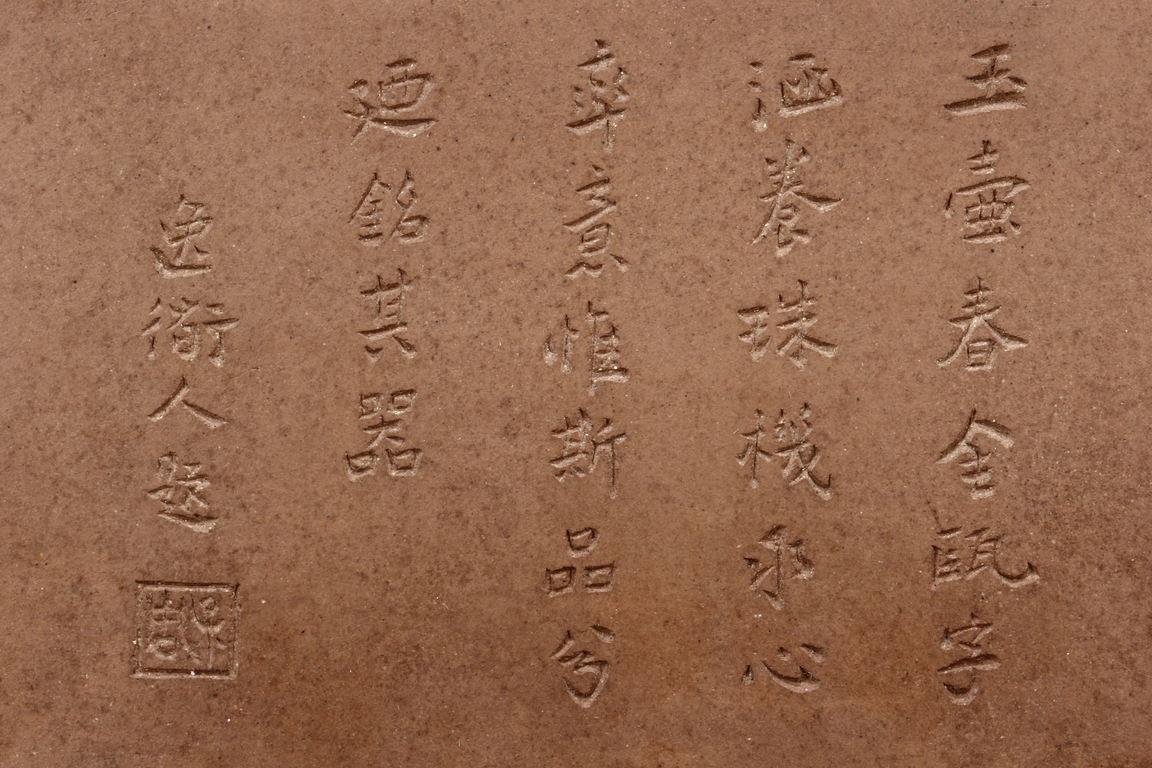 玉壺春金甌字
涵養珠機心
率意惟斯品兮
廼銘其器
逸衜人題